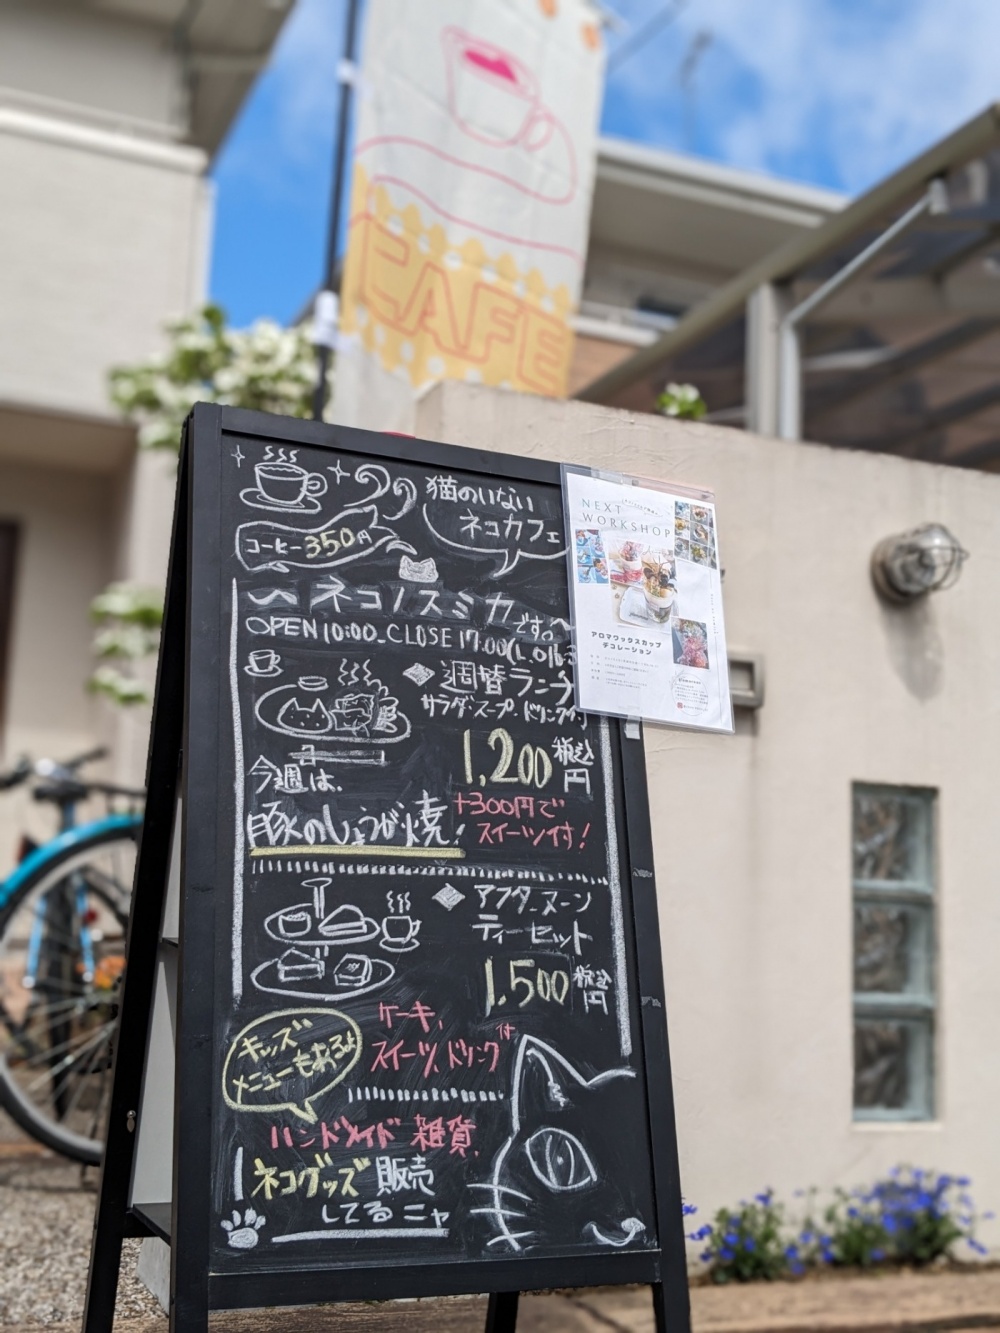 CAFE
猫のいない
ネコカフェ
コーヒー350円
〜ネコノスミカです。〜
OPEN 10:00_CLOSE 17:00(L.O16:
◆週替ランチ
サラダ・スープ・ドリンク付
1,200 税込円
今週は、
豚のしょうが焼!
+300円で
スイーツ付!
◆アフタヌーン
ティーセット
1,500 税込円
ケーキ、
スイーツ、ドリンク付
キッズ
メニューもあるよ
ハンドメイド 雑貨、
ネコグッズ 販売
してるニャ
NEXT
WORKSHOP
アロマワックスカップ
デコレーション